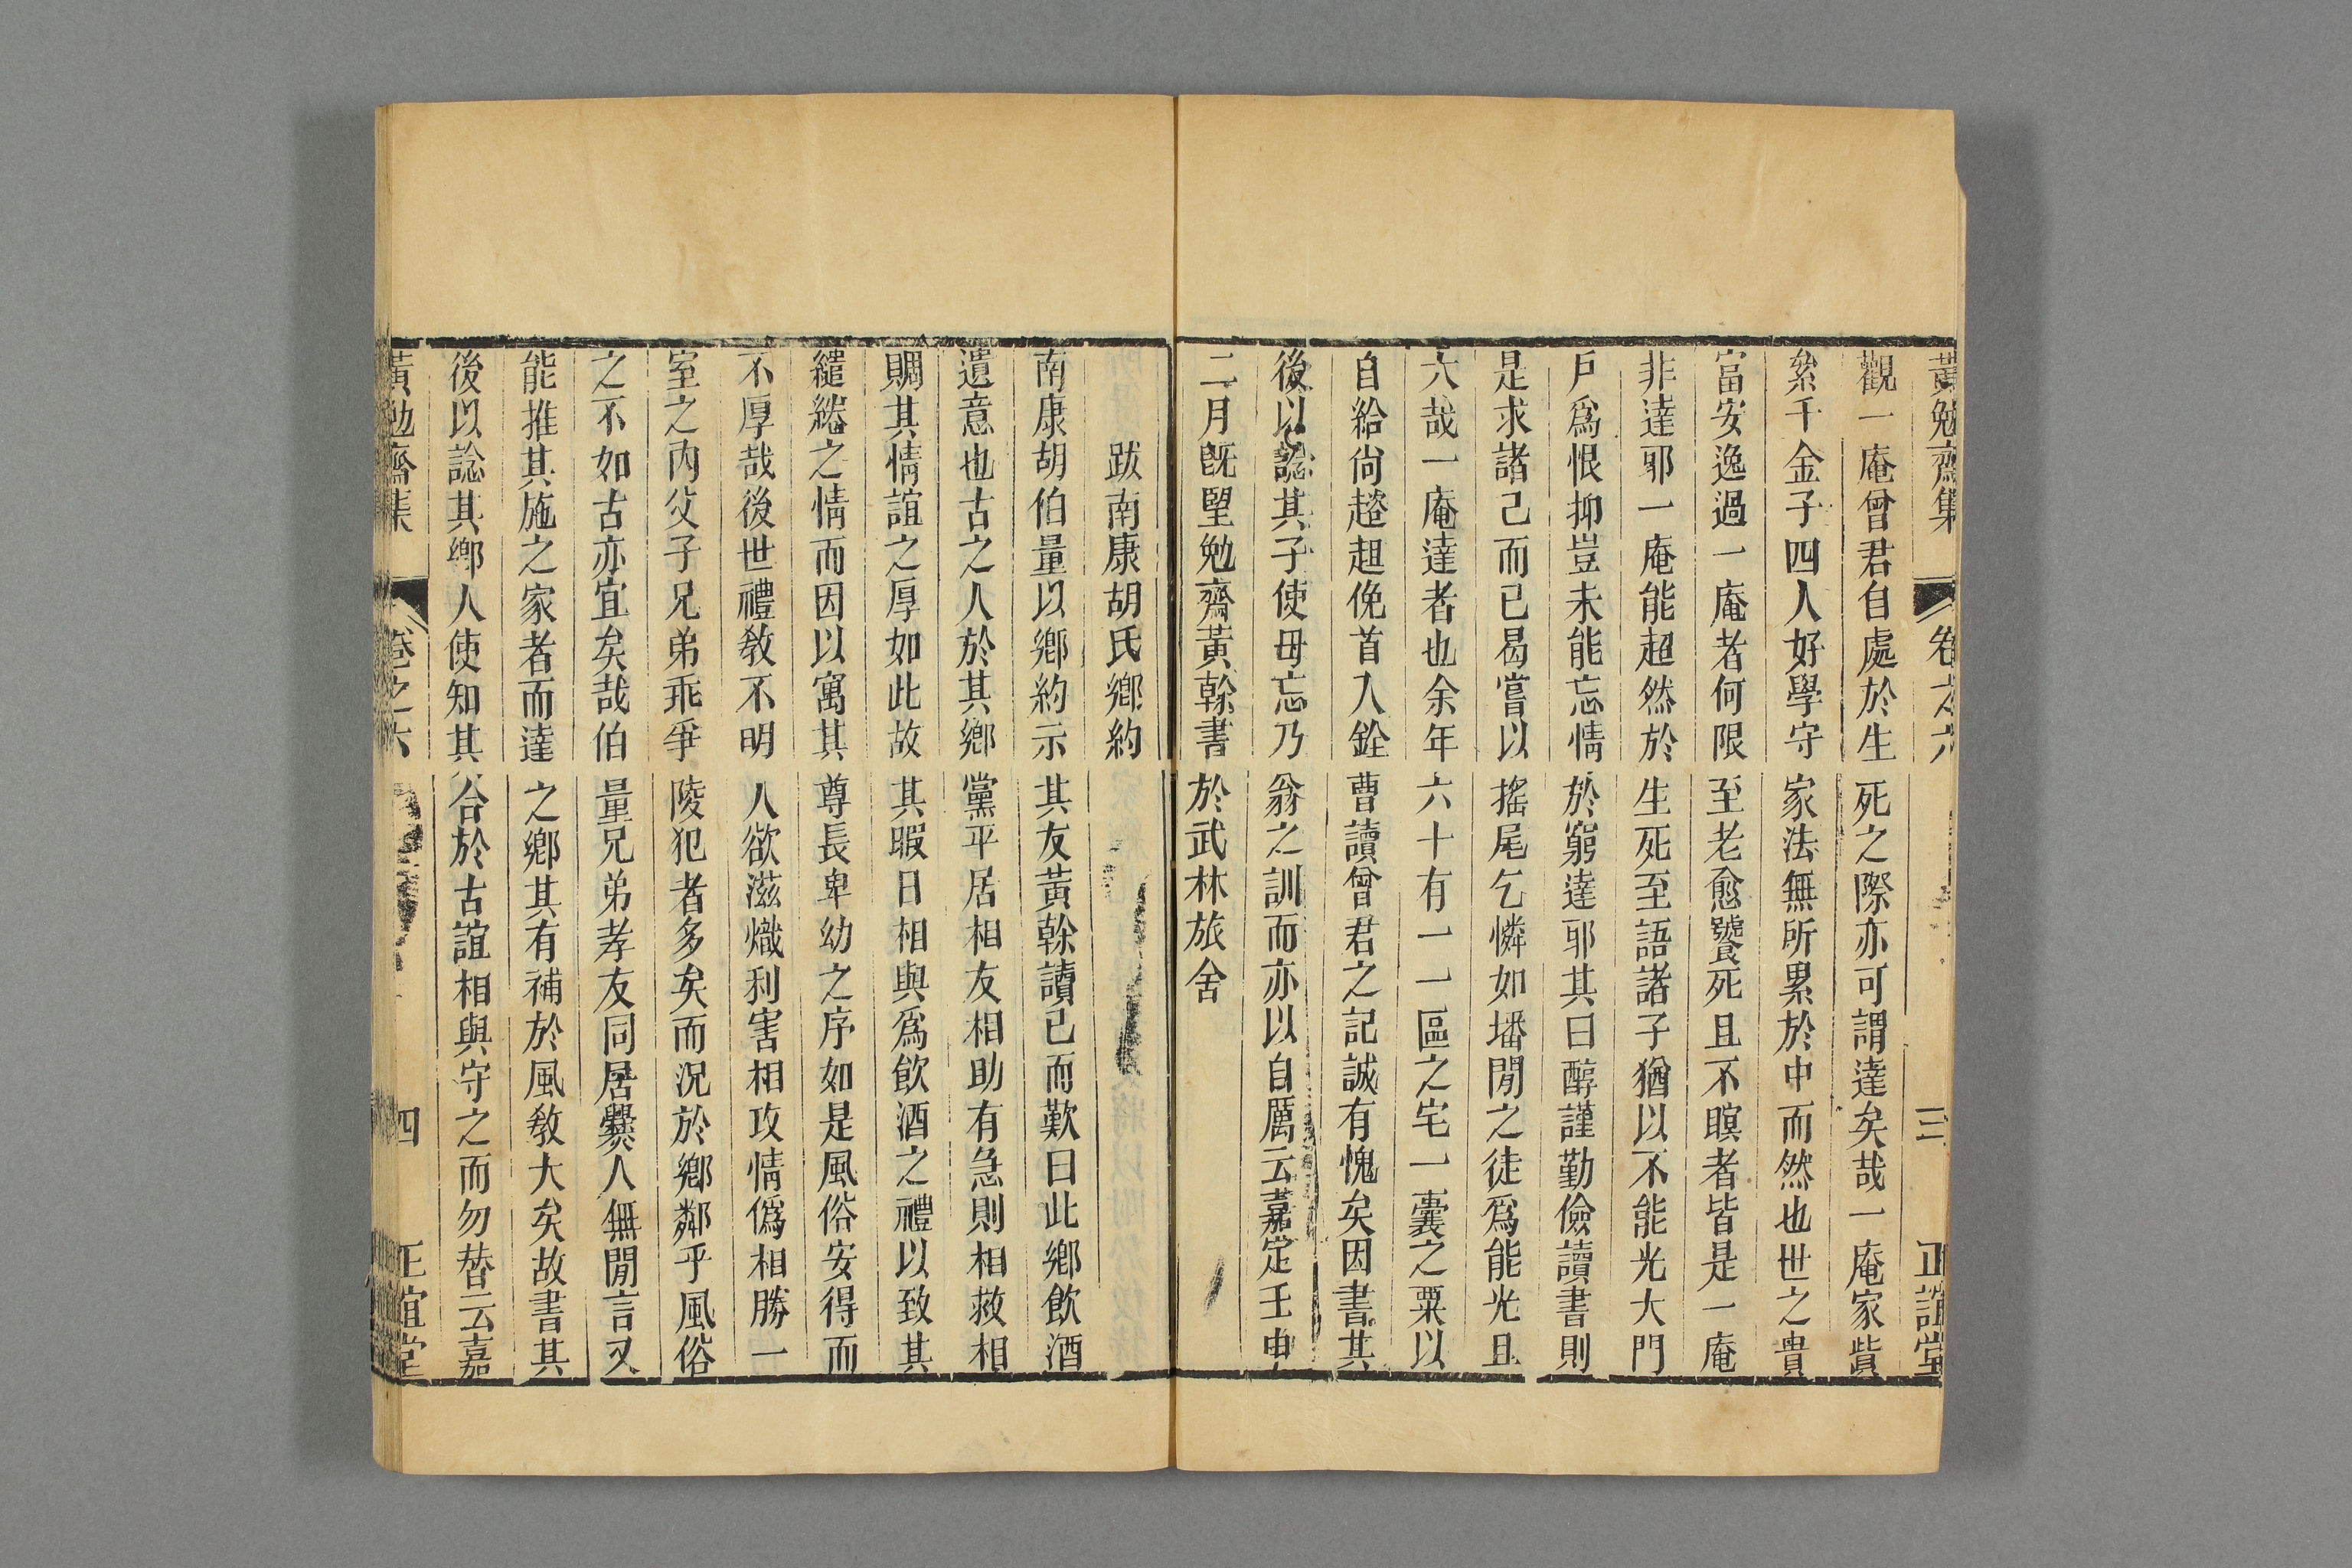 黃勉齋集 卷之六 三 正誼堂
觀一庵曾君自處於生死之際亦可謂達矣哉一庵家貲
累千金子四人好學守家法無所累於中而然也世之貴
富安逸過一庵者何限至老愈饕死且不瞑者皆是一庵
非達耶一庵能超然於生死至語諸子猶以不能光大門
戶爲恨抑豈未能忘情於窮達耶其曰醇謹勤儉讀書則
是求諸己而已曷嘗以搖尾乞憐如墦閒之徒爲能光且
大哉一庵達者也余年六十有一一區之宅一囊之粟以
自給尙趦趄俛首入銓曹讀曾君之記誠有愧矣因書其
後以諗其子使毋忘乃翁之訓而亦以自厲云嘉定壬申
二月旣望勉齋黃榦書於武林旅舍
跋南康胡氏鄉約
南康胡伯量以鄉約示其友黃榦讀已而歎曰此鄉飮酒
遺意也古之人於其鄉黨平居相友相助有急則相救相
賙其情誼之厚如此故其暇日相與爲飮酒之禮以致其
繾綣之情而因以寓其尊長卑幼之序如是風俗安得而
不厚哉後世禮敎不明人欲滋熾利害相攻情僞相勝一
室之內父子兄弟乖爭陵犯者多矣而況於鄉鄰乎風俗
之不如古亦宜矣哉伯量兄弟孝友同居爨人無閒言又
能推其施之家者而達之鄉其有補於風敎大矣故書其
後以諗其鄉人使知其合於古誼相與守之而勿替云嘉
黃勉齋集 卷之六 四 正誼堂